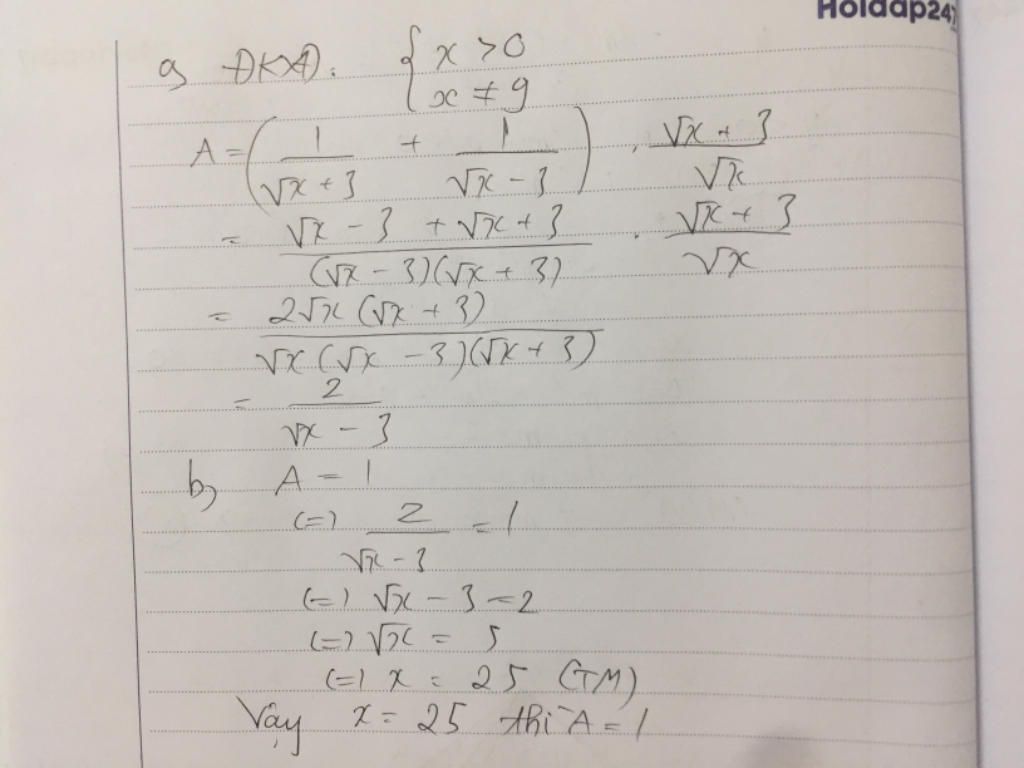 Hoidap247
a) ĐKXĐ: { x > 0
x ≠ 9
A = ( 1/(√x + 3) + 1/(√x - 3) ) . (√x + 3)/√x
= (√x - 3 + √x + 3)/((√x - 3)(√x + 3)) . (√x + 3)/√x
= 2√x (√x + 3)/(√x (√x - 3)(√x + 3))
= 2/(√x - 3)
b) A = 1
(=) 2/(√x - 3) = 1
(=) √x - 3 = 2
(=) √x = 5
(=) x = 25 (TM)
Vậy x = 25 thì A = 1